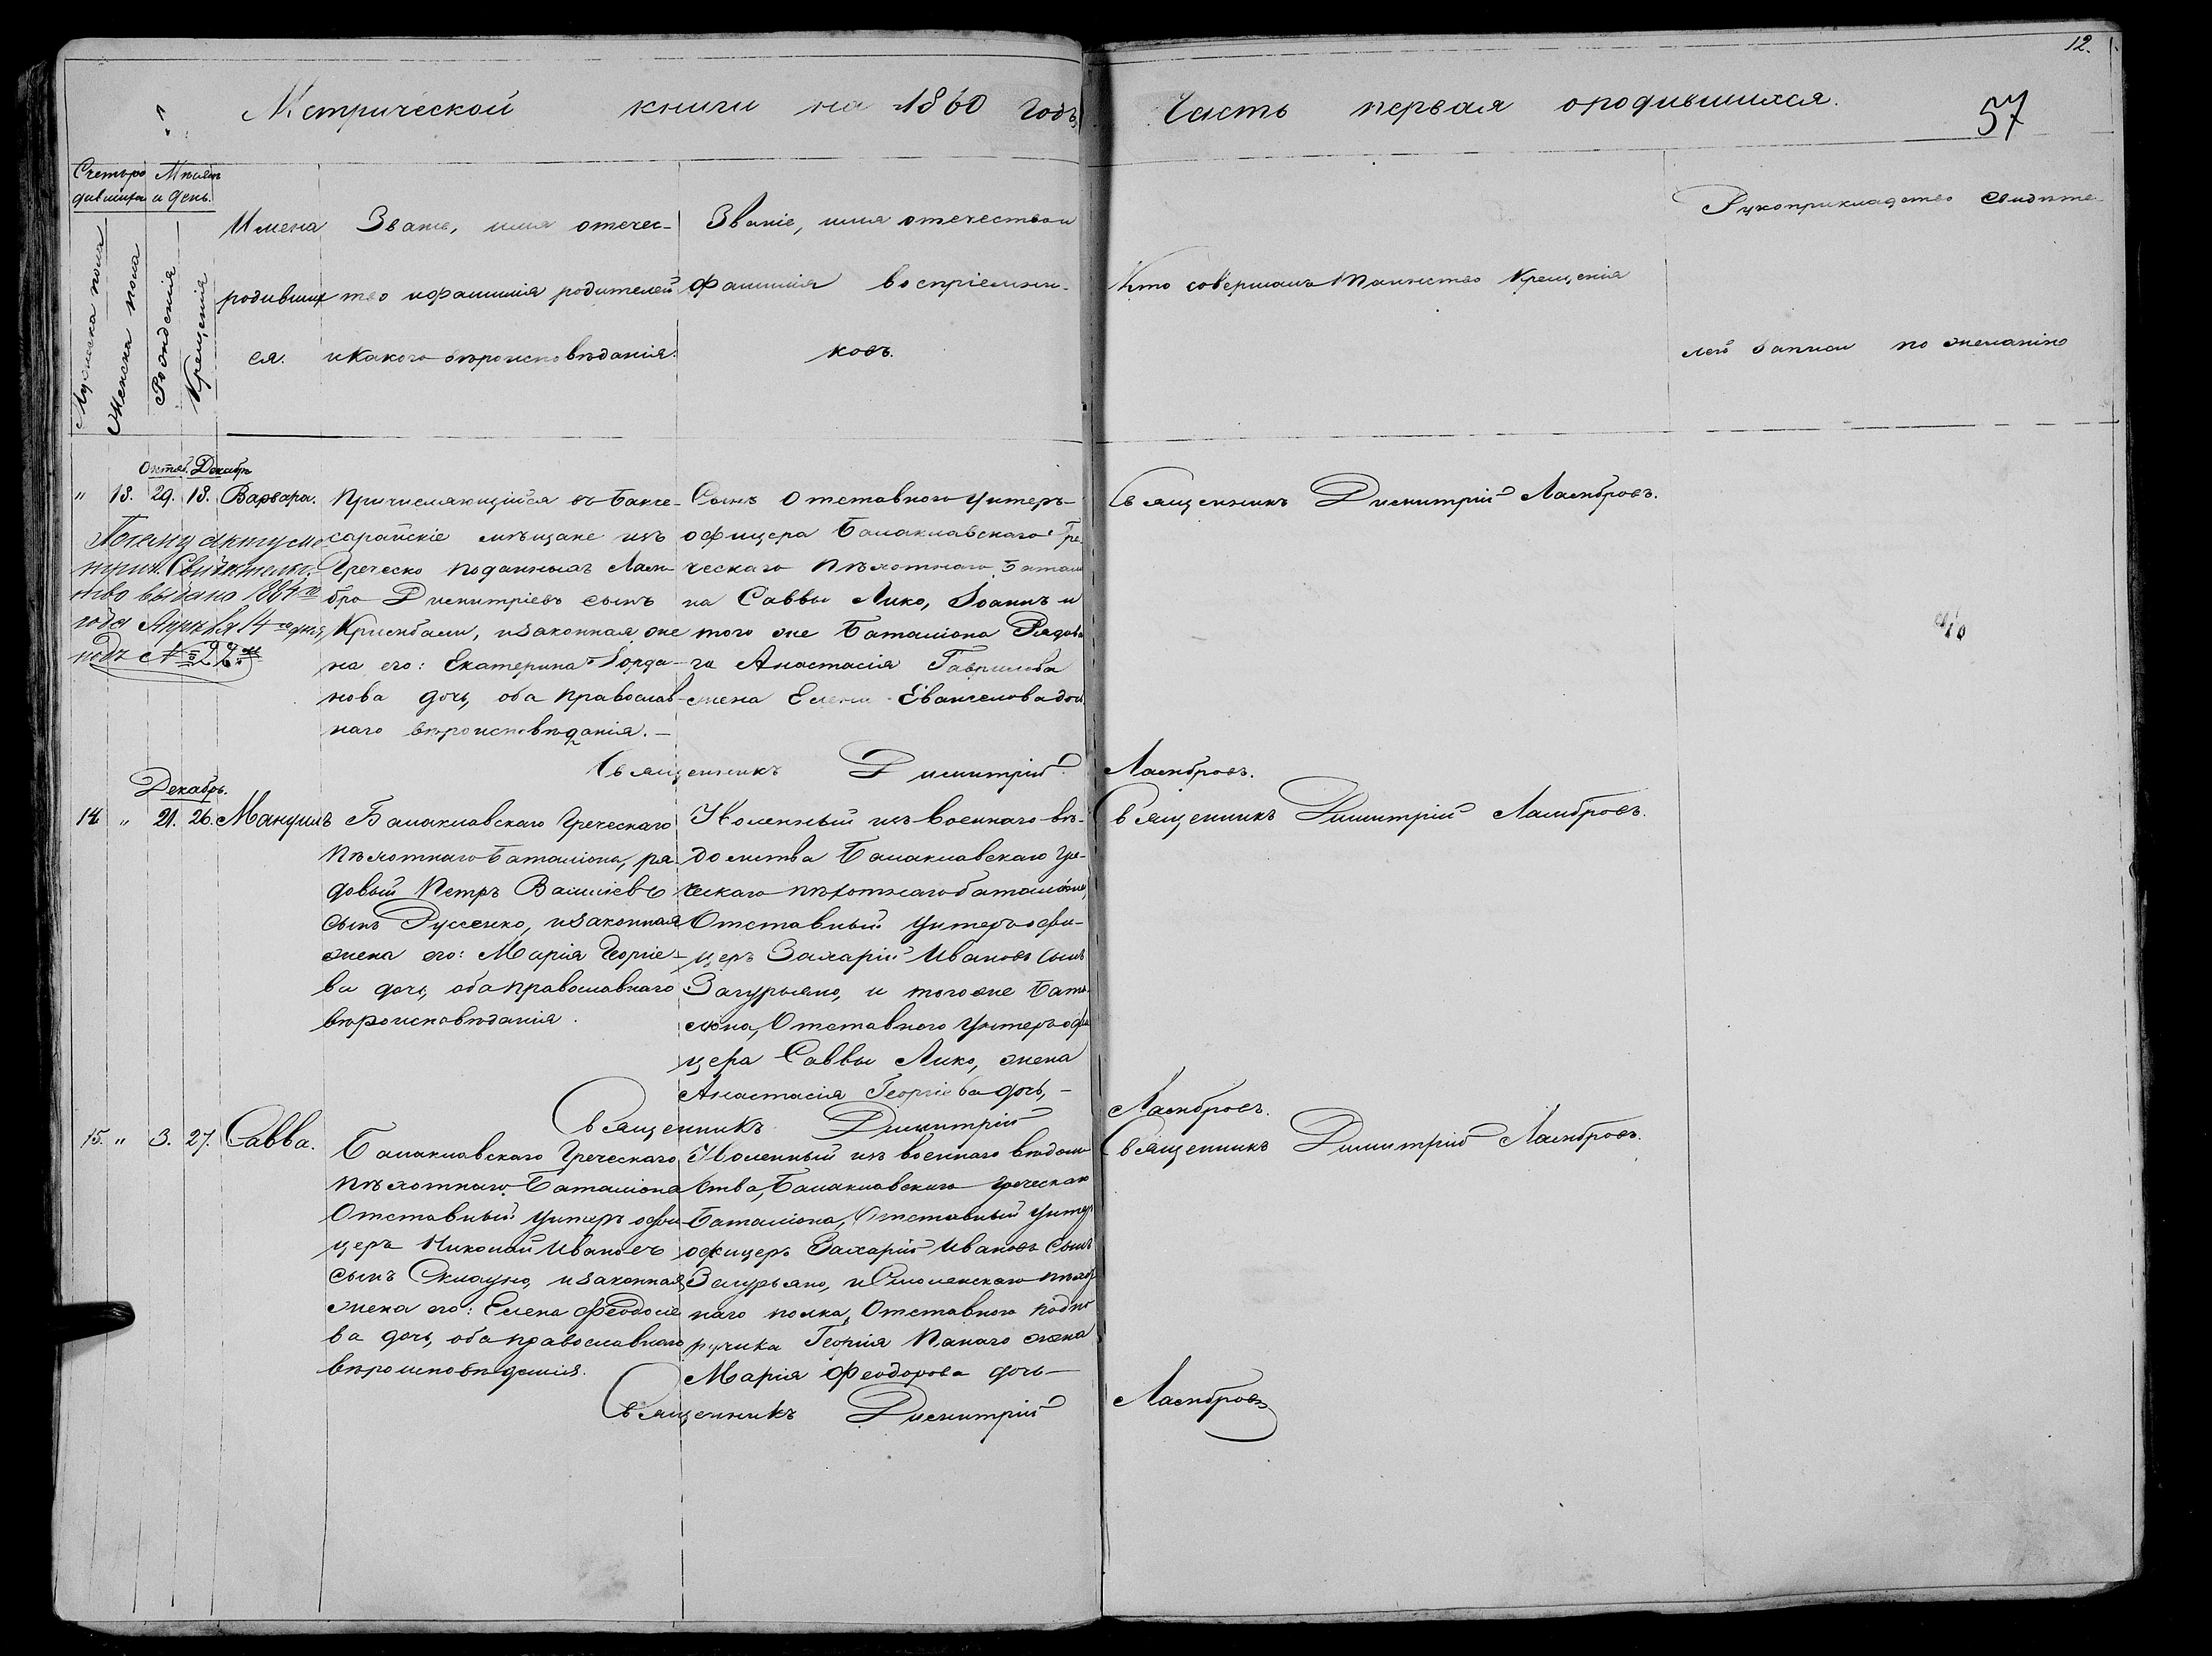 12.
Метрической книги на 1860 годъ
Часть первая ородившихся.
57
Счетъ ро
дившихся
Мѣсяцъ
и день.
Мужеска пола
Женска пола
Рожденія
Крещенія
Имена
родивших
ся.
Званіе, имя отечес-
тво ифамилія родителей
икакого вѣроисповѣданія.
Званіе, имя отечествои
фамилія воспріемни-
ковъ.
Кто совершалъ таинство Крещенія
Рукоприкладство свидѣте-
лей записи по желанію
Октяб. Декабрь
" 13. 29. 18. Варвара.
Причисляющійся въ Бахче-
сарайскіе мѣщане изъ
Греческо подданныхъ Лам-
бро Димитріевъ сынъ
, изаконная же
на его: Екатерина Іорда-
нова дочь, оба православ-
наго вѣроисповѣданія.—
Сынъ Отставного Унтеръ-
офицера Балаклавскаго Гре
ческаго Пѣхотнаго Батал
на Саввы Лико, Іоаннъ и
того же Баталіона Рядова
га Анастасія Гаврилова
жена Елена Евангеловадоч
Священникъ Димитрій Ламбровъ.
По сему акту ме
трич. Свидѣтель-
ство выдано 1884 го
года Апрѣля 14 го дня,
подъ №
Священникъ Димитрій Ламбровъ.
Декабрь.
14. " 21. 26. Мануилъ
Балаклавскаго Греческаго
Пѣхотнаго Баталіона, ря-
довый Петръ Василіевъ
сынъ Руссенко, изаконная
жена его: Марія Георгіе-
ва дочь, оба православнаго
вѣроисповѣданія.
Уволенный изъ военнаго вѣ-
домства Балаклавскаго Гре-
ческаго пѣхотнаго баталіона,
Отставный Унтеръ офи-
церъ Захарій Ивановъ сынъ
Загурьяно, и тогоже Бата-
ліона, Отставного Унтеръ офи
цера Саввы Лико, жена
Анастасія Георгіева дочь,—
Священникъ Димитрій Ламбровъ.
Священникъ Димитрій Ламбровъ.
15. " 3. 27. Савва.
Балаклавскаго Греческаго
Пѣхотнаго Баталіона
Отставный Унтеръ офи-
церъ Николай Ивановъ
сынъ , изаконная
жена его: Елена Феодосіе
ва дочь, оба православнаго
вѣроисповѣданія.
Уволенный изъ военнаго вѣдом
ства, Балаклавскаго Греческаго
Баталіона, Отставный Унтеръ
офицеръ Захарій Ивановъ сынъ
Загурьяно, и Смоленскаго пѣхот
наго полка, Отставного подпо
ручика Георгія жена
Марія Феодорова дочь—
Священникъ Димитрій Ламбровъ.
Священникъ Димитрій Ламбровъ